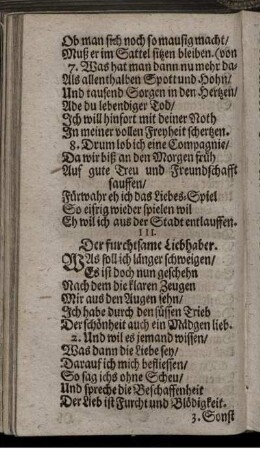 Ob man sich noch so mausig macht/
Muß er im Sattel sitzen bleiben. (von
7. Was hat man dann nu mehr da-
Als allenthalben Spott und Hohn/
Und tausend Sorgen in den Hertzen/
Ade du lebendiger Tod/
Ich will hinfort mit deiner Noth
In meiner vollen Freyheit schertzen.
8. Drum lob ich eine Compagnie/
Da wir biß an den Morgen früh
Auf gute Treu und Freundschafft
sauffen/
Fürwahr eh ich das Liebes-Spiel
So eifrig wieder spielen wil
Eh wil ich aus der Stadt entlauffen.
III.
Der furchtsame Liebhaber.
WAs soll ich länger schweigen/
Es ist doch nun geschehn
Nach dem die klaren Zeugen
Mir aus den Augen sehn/
Ich habe durch den süssen Trieb
Der schönheit auch ein Mädgen lieb.
2. Und wil es jemand wissen/
Was dann die Liebe sey/
Darauf ich mich befliessen/
So sag ichs ohne Scheu/
Und spreche die Beschaffenheit
Der Lieb ist Furcht und Blödigkeit.
3. Sonst